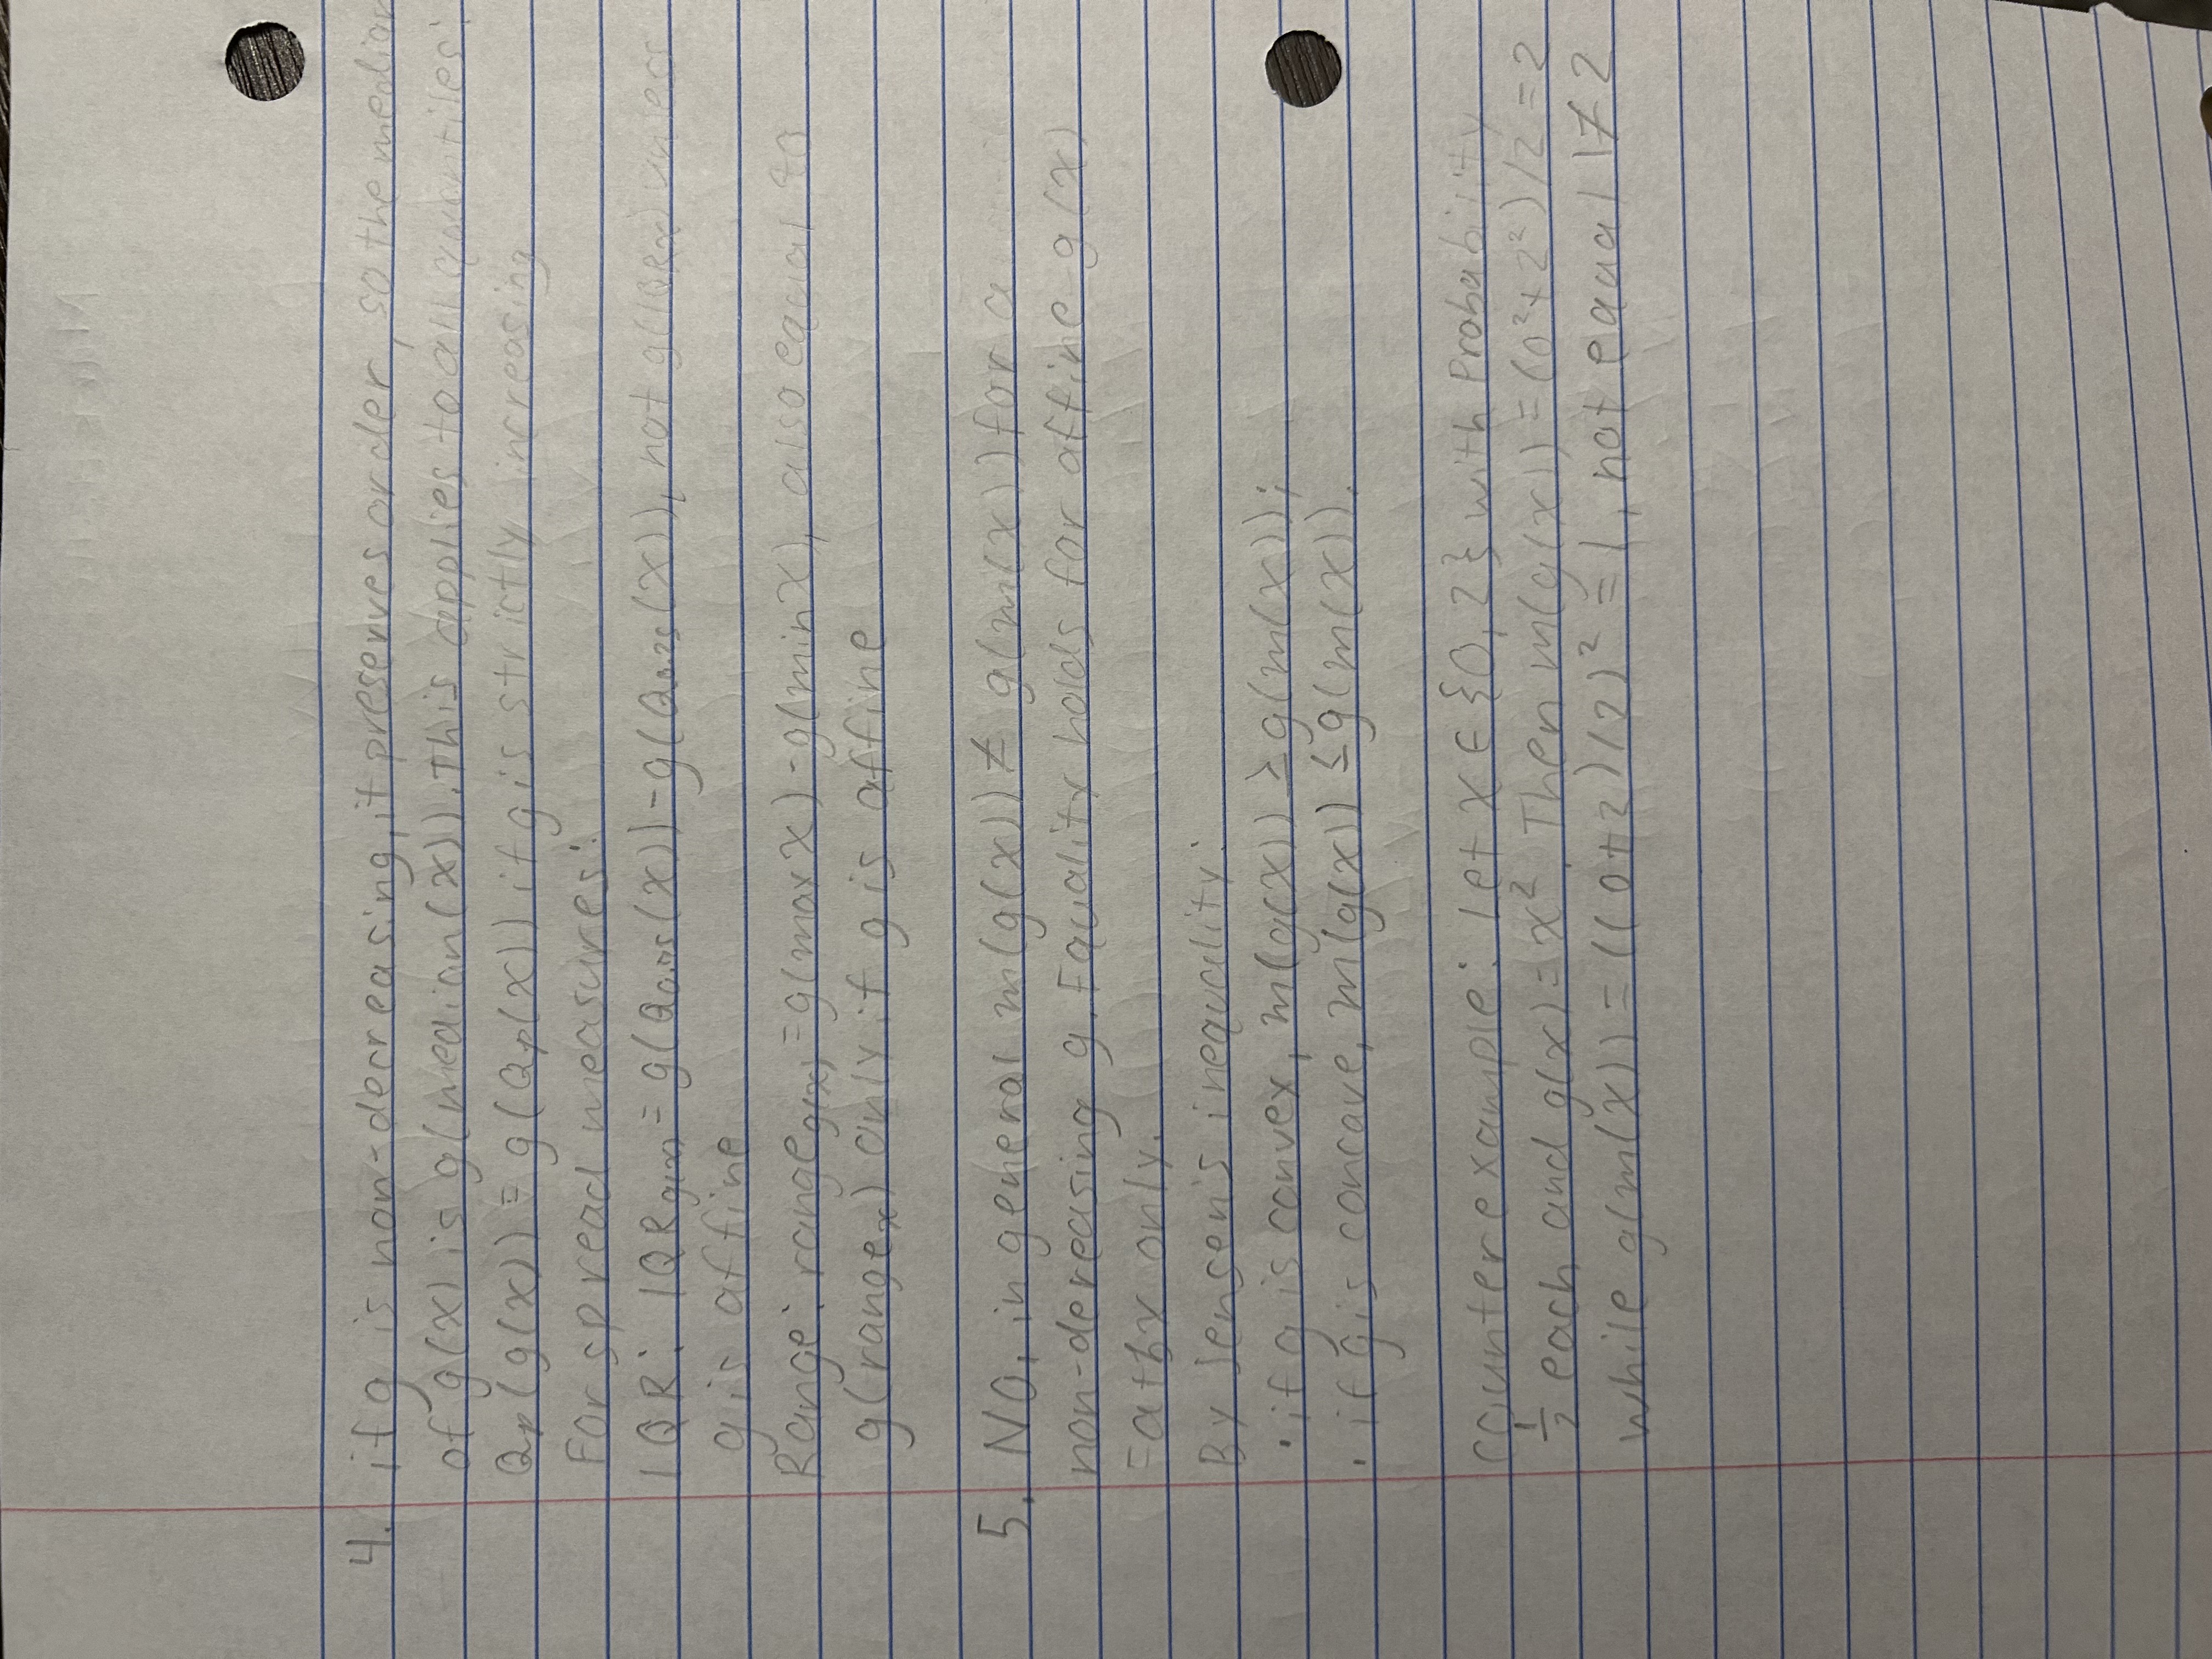 4. if g is non-decreasing, it preserves order, so the median
of g(x) is g(median(x)). This applies to all quantiles:
Qp(g(x)) = g(Qp(x)) if g is strictly increasing
For spread measures:
IQR: IQR g(x) = g(Q0.75(x)) - g(Q0.25(x)), not g(IQRx) unless
g is affine
Range: range g(x) = g(max X) - g(min X), also equal to
g(range x) only if g is affine
5. NO, in general m(g(x)) ≠ g(m(x)) for a
non-dereasing g. Equality holds for affine g(x)
=a+bx only.
By Jensen's inequality:
• if g is convex, m(g(x)) ≥ g(m(x));
• if g is concave, m(g(x)) ≤ g(m(x)).
counterexample: Let X ∈ {0,2} with Probability
1/2 each and g(x) = x². Then m(g(x)) = (0²+2²)/2 = 2
while g(m(x)) = ((0+2)/2)² = 1, not equal 1≠2